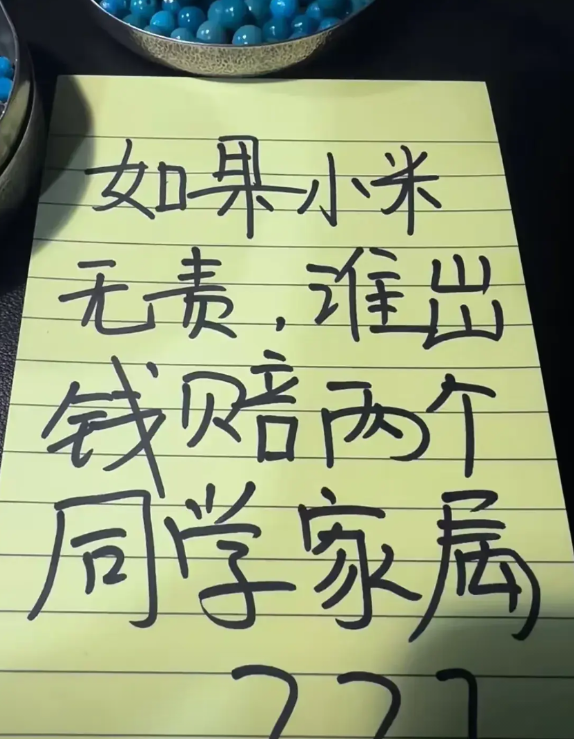 如果小米
无责,谁出
钱赔两个
同学家属
???